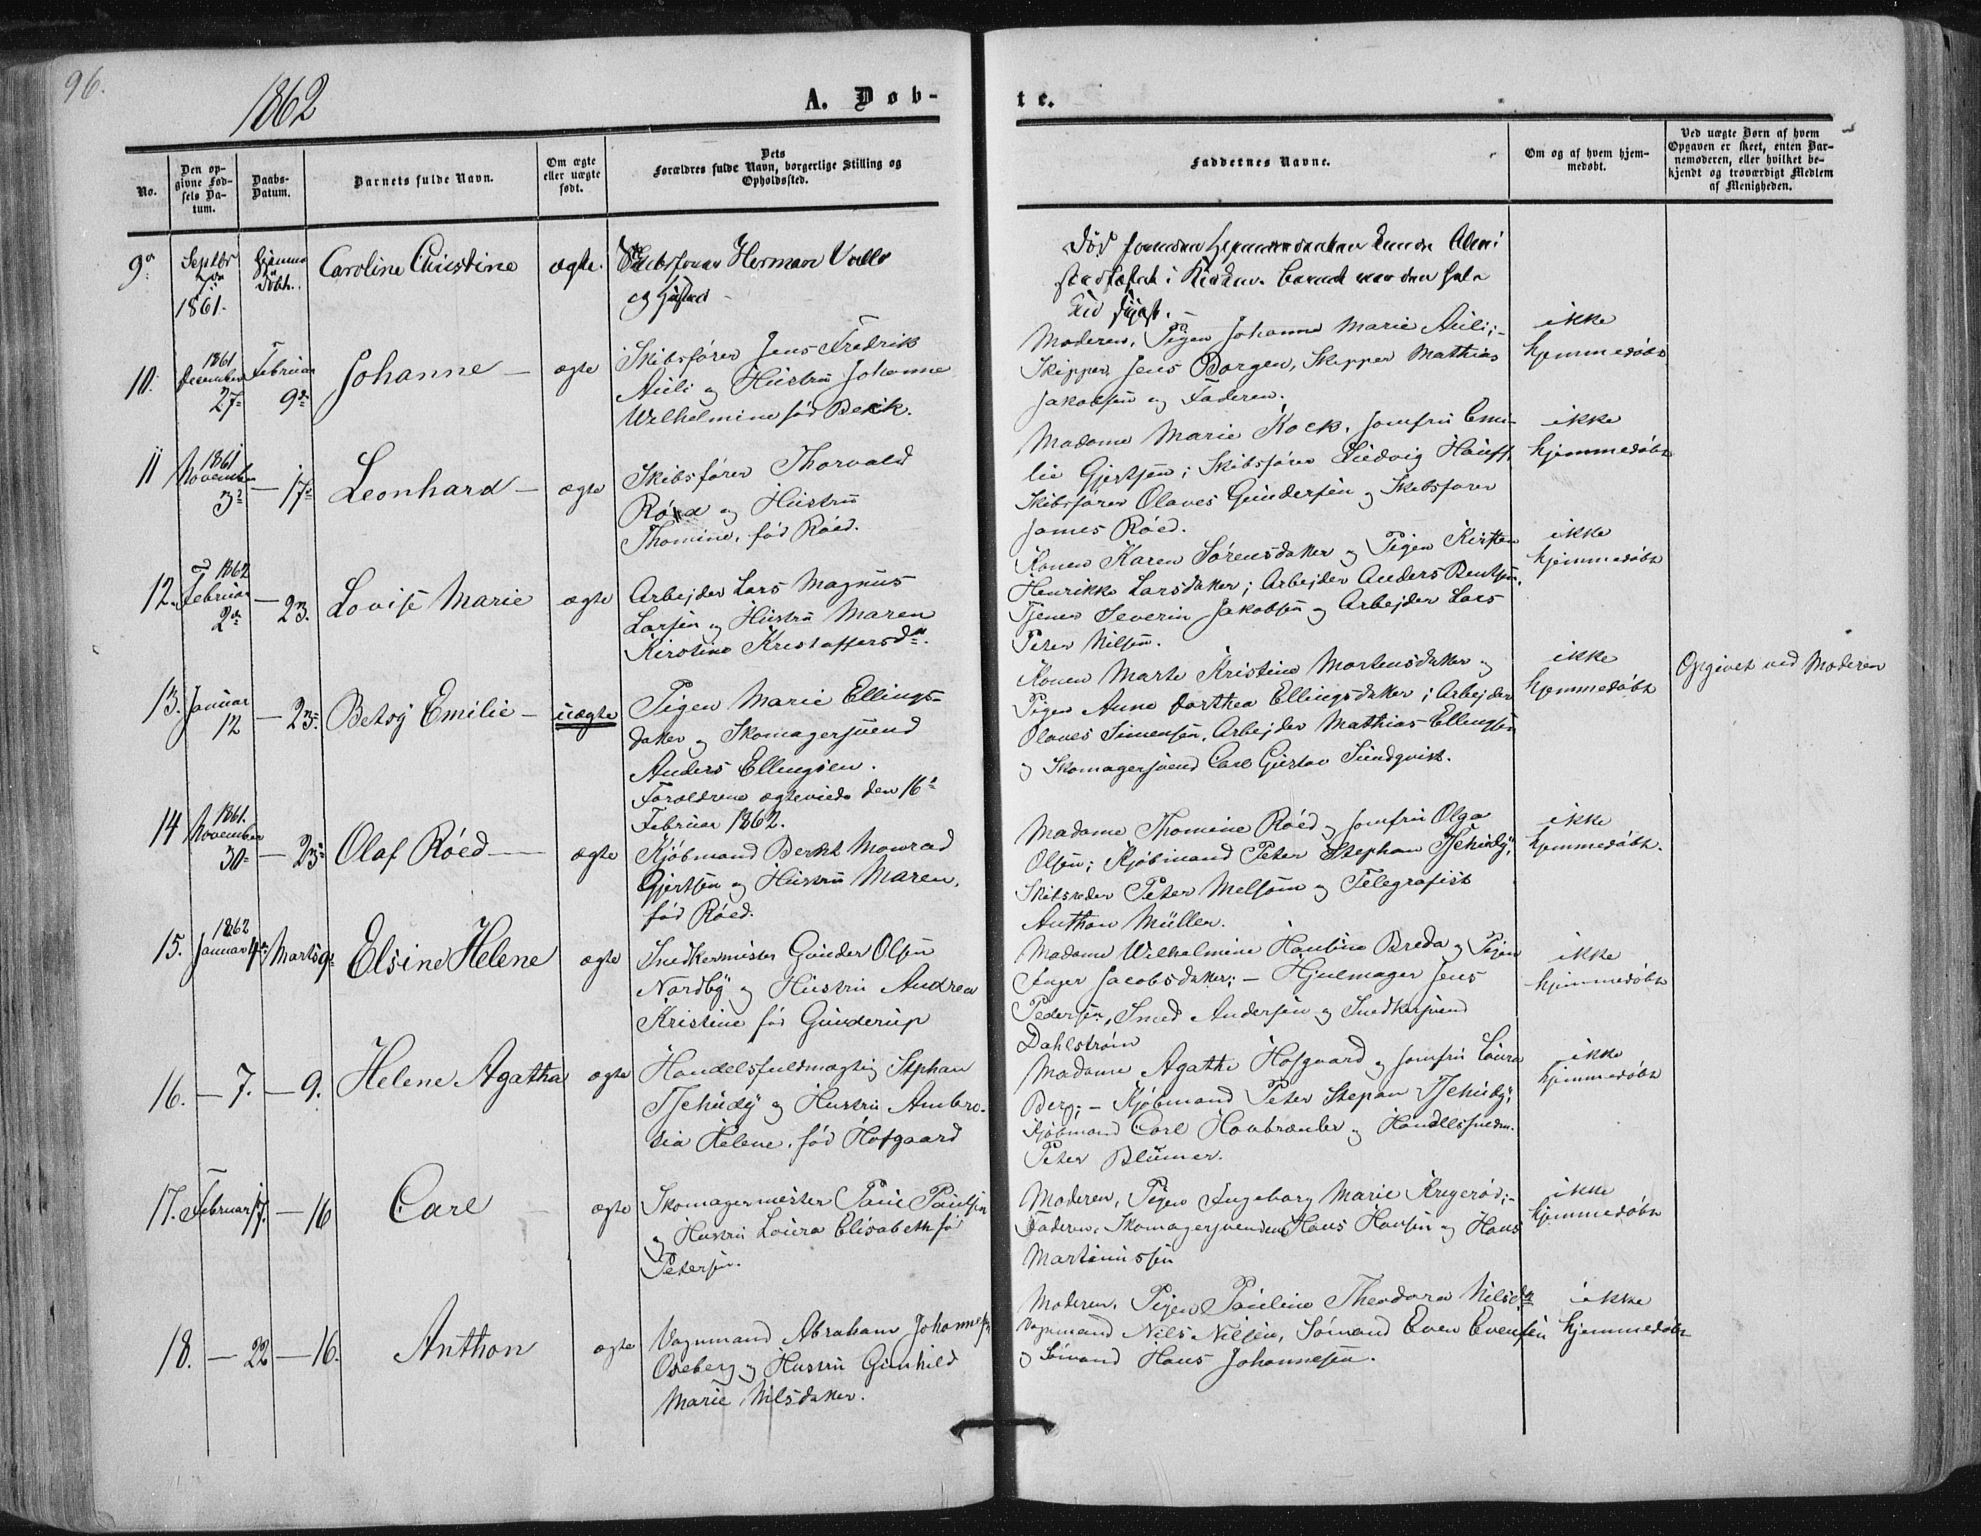 96.
1862
A. Døb-
te.
No.
Den op-
givne Fød-
sels Da-
tum.
Daabs-
Datum.
Barnets fulde Navn.
Om ægte
eller uægte
født.
Dets
Forældres fulde Navn, borgerlige Stilling og
Opholdssted.
Faddernes Navne.
Om og af hvem hjem-
medøbt.
Ved uægte Børn af hvem
Opgaven er skeet, enten Bar-
nemoderen, eller hvilket be-
kjendt og troværdigt Medlem
af Menigheden.
9a
Septbr
7de
1861.
Hjemme
døbt.
Caroline Christine
ægte.
Skibsfører Herman
og Hustru
Død førend Hjemmedaaben kunde blive
stadfæstet i Kirken. Barnet var den hele
Tid sygt.
10.
1861
December
27
Februar
9de
Johanne
ægte
Skibsfører Jens Fredrik
Auli og Hustru Johanne
Wilhelmine fød Beck.
Moderen, Pigen Johanne Marie Auli;
Skipper Jens Borgen, Skipper Mathias
Jakobsen og Faderen.
ikke
hjemmedøbt
11
1861
November
3de
17de
Leonhard
ægte
Skibsfører Thorvald
Röed og Hustru
Thomine, fød Röed.
Madame Marie Kock, Jomfru Emi-
lie Gjertsen; Skibsfører Ludvig Hauff,
Skibsfører Olaves Gundersen og Skibsfører
James Röed.
ikke
hjemmedøbt
12
1862
Februar
2den
23.
Lovise Marie
ægte
Arbejder Lars Magnus
Larsen og Hustru Maren
Kirstine Kristoffersdr.
Konen Karen Sørensdatter og Pigen Kirsten
Henrikke Larsdatter; Arbejder Anders Bentsen,
Tjener Severin Jakobsen og Arbejder Lars
Peter Nilsen.
ikke
hjemmedøbt
13.
Januar
12
23de
Betsy Emilie
uægte
Pigen Marie Ellings-
datter og Skomagersvend
Anders Ellingsen.
Forældrene ægteviede den 16de
Februar 1862.
Konen Marte Kristine Mortensdatter og
Pigen Anne Dorthea Ellingsdatter; Arbejder
Olaves Simensen, Arbejder Mathias Ellingsen
og Skomagersvend Carl Gustav Sundqvist.
ikke
hjemmedøbt
Opgivet ved Moderen
14
1861.
November
30te
23de
Olaf Röed
ægte
Kjøbmand Bernt Monrad
Gjertsen og Hustru Maren,
fød Röed.
Madame Thomine Röed og Jomfru Olga
Olsen; Kjøbmand Peter Stephan Tschudy;
Skibsreder Peter Melsom og Telegrafist
Anthon Müller.
ikke
hjemmedøbt.
15.
1862
Januar 4de
Marts 9de
Elsine Helene
ægte
Snedkermester Gunder Olsen
Nordby og Hustru Andrea
Kristine fød Gunderup
Madame Wilhelmine Hansine Breda og Pigen
Inger Jacobsdatter; Hjulmager Jens
Pedersen, Smed Andersen og Snedkersvend
Dahlström
ikke
hjemmedøbt
16.
7.
9.
Helene Agatha
ægte
Handelsfuldmægtig Stephan
Tschudy og Hustru Ambro-
sia Helene, fød Hofgaard
Madame Agathe Hofgaard og Jomfru Laura
Berg; Kjøbmand Peter Stepan Tschudy;
Kjøbmand Carl Hovbrænder og Handelsfuldm.
Peter Blumer.
ikke
hjemmedøbt
17.
Februar 17.
16
Carl
ægte
Skomagermester Paul Paulsen
og Hustru Laura Elisabeth fød
Petersen.
Moderen, Pigen Ingeborg Marie Krygerød;
Faderen, Skomagersvendene Hans Hansen og Hans
Martinussen
ikke
hjemmedøbt
18.
22
16.
Anthon
ægte
Vognmand Abraham Johannesen
Oseberg og Hustru Gunhild
Marie Nilsdatter.
Moderen, Pigen Pauline Theodora Nilsdtr
Vognmand Nils Nilsen, Sømand Even Evensen
og Sømand Hans Johannesen.
ikke
hjemmedøbt